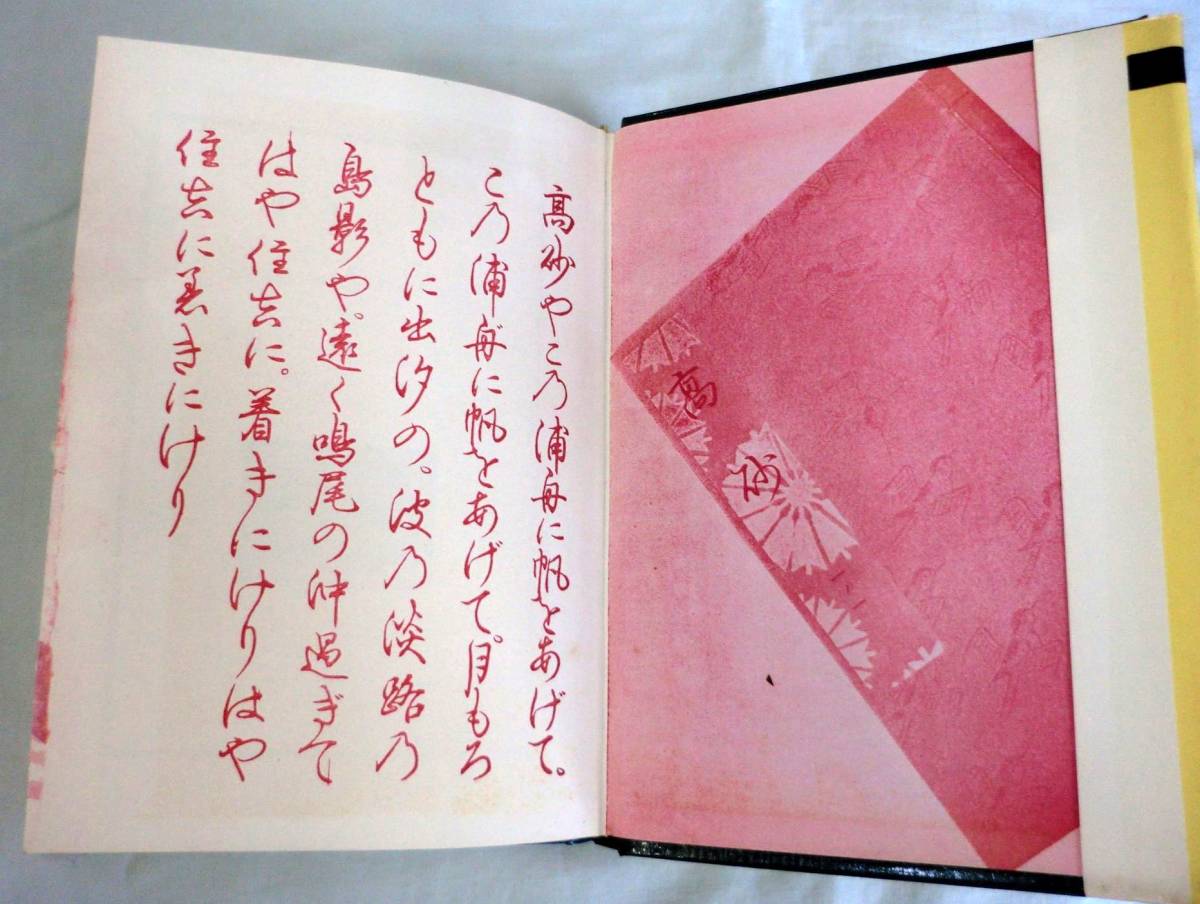 高砂
高砂やこ乃浦舟に帆をあげて。
こ乃浦舟に帆をあげて。月もろ
ともに出汐の。波乃淡路乃
島影や。遠く鳴尾の沖過ぎて
はや住吉に。着きにけりはや
住吉に着きにけり